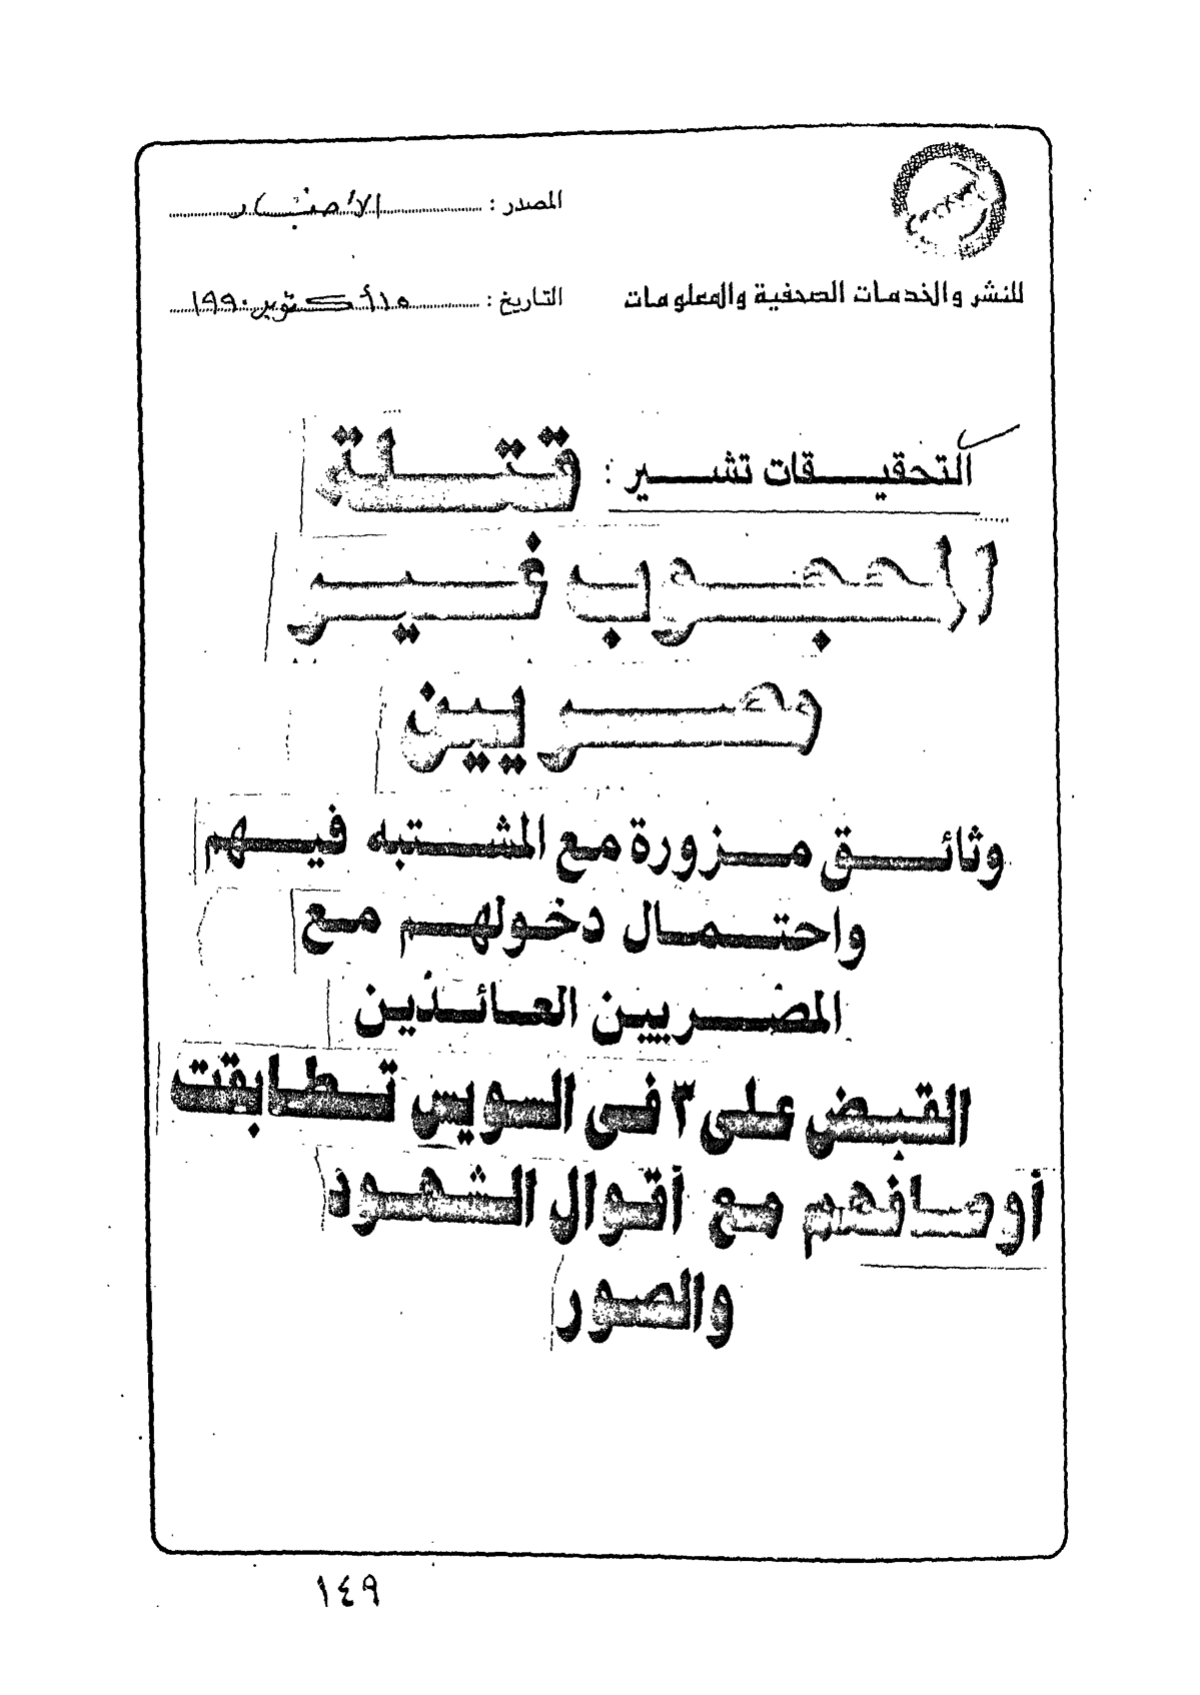 المصدر : الأخبار
للنشر والخدمات الصحفية والمعلومات
التاريخ : ١٥ أكتوبر ١٩٩٠
التحقيقات تشير : قتلة
المحجوب غير
مصريين
وثائق مزورة مع المشتبه فيهم
واحتمال دخولهم مع
المصريين العائدين
القبض على ٣ فى السويس تطابقت
أوصافهم مع أقوال الشهود
والصور
١٤٩